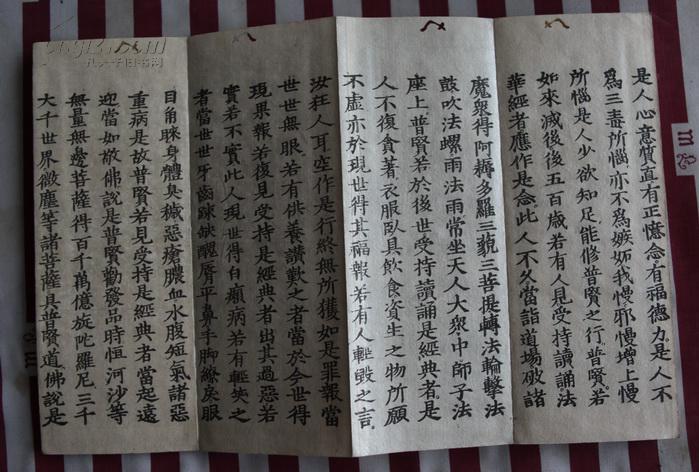 是人心意質直有正憶念有福德力是人不
為三毒所惱亦不為嫉妬我慢邪慢增上慢
所惱是人少欲知足能修普賢之行普賢若
如來滅後後五百歲若有人見受持讀誦法
華經者應作是念此人不久當詣道場破諸
魔眾得阿耨多羅三藐三菩提轉法輪擊法
鼓吹法螺雨法雨當坐天人大眾中師子法
座上普賢若於後世受持讀誦是經典者是
人不復貪著衣服臥具飲食資生之物所願
不虛亦於現世得其福報若有人輕毀之言
汝狂人耳空作是行終無所獲如是罪報當
世世無眼若有供養讚歎之者當於今世得
現果報若復見受持是經典者出其過惡若
實若不實此人現世得白癩病若有輕笑之
者當世世牙齒踈缺醜脣平鼻手脚繚戾眼
目角睞身體臭穢惡瘡膿血水腹短氣諸惡
重病是故普賢若見受持是經典者當起遠
迎當如敬佛說是普賢勸發品時恒河沙等
無量無邊菩薩得百千萬億旋陀羅尼三千
大千世界微塵等諸菩薩具普賢道佛說是